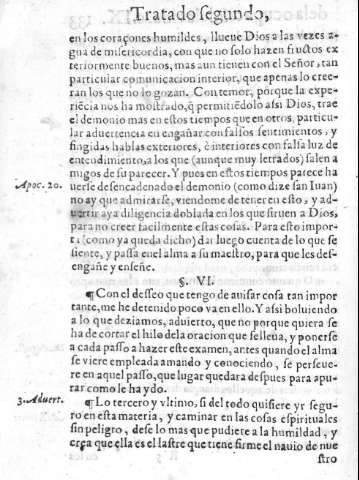 Tratado segundo,
en los coraçones humildes, llueue Dios a las vezes a-
gua de misericordia, con que no solo hazen fructos ex
teriormente buenos, mas aun tienen con el Señor, tan
particular comunicacion interior, que apenas lo cree-
ran los que no lo gozan. Con temor, porque la expe-
riẽcia nos ha mostrado, q̃ permitiẽdolo assi Dios, trae
el demonio mas en estos tiempos que en otros, particu-
lar aduertencia en engañar con falsos sentimientos, y
fingidas hablas exteriores, è interiores con falsa luz de
entendimiento, a los que (aunque muy letrados) salen a
migos de su parecer. Y pues en estos tiempos parece ha
Apoc. 20.
uerse desencadenado el demonio (como dize san Iuan)
no ay que admirarse, viendome detener en esto, y ad-
uertir aya diligencia doblada en los que siruen a Dios,
para no creer facilmente estas cosas. Para esto impor-
ta (como ya queda dicho) dar luego cuenta de lo que se
siente, y passa en el alma a su maestro, para que les des-
engañe y enseñe.
§. VI.
¶ Con el desseo que tengo de auisar cosa tan impor
tante, me he detenido poco va en ello. Y assi boluiendo
a lo que deziamos, aduierto, que no porque quiera se
ha de cortar el hilo de la oracion que se lleua, y ponerse
a cada passo a hazer este examen, antes quando el alma
se viere empleada amando y conociendo, se perseue-
re en aquel passo, que lugar quedara despues para apu-
rar como le ha ydo.
3. Aduert.
¶ Lo tercero y vltimo, si del todo quisiere yr segu-
ro en esta materia, y caminar en las cosas espirituales
sin peligro, dese lo mas que pudiere a la humildad, y
crea que ella es el lastre que tiene firme el nauio de nue
stro